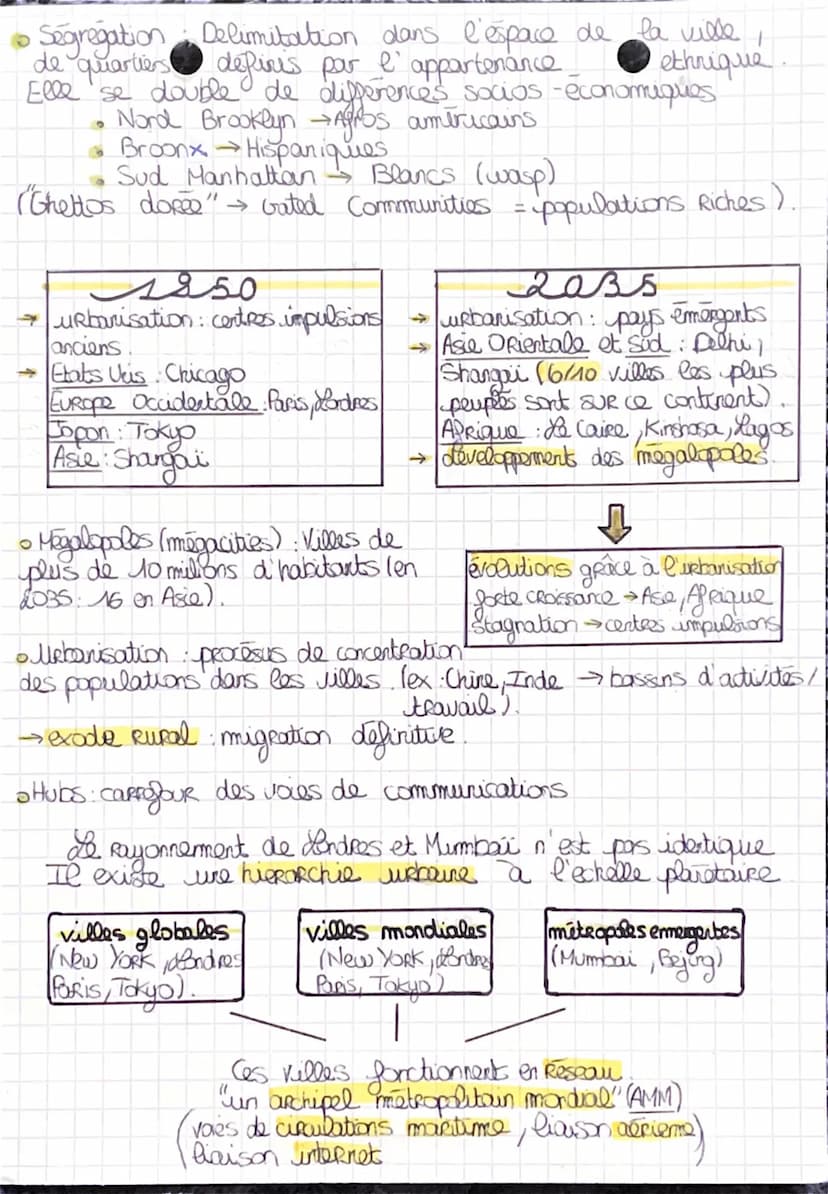 Ségrégation : Delimitation dans l'éspace de la ville,
de quartiers définis par l'appartenance ethnique.
Elle se double de différences socios-économiques
Nord Brooklyn → Afros américains
Broonx → Hispaniques
Sud Manhattan → Blancs (wasp)
("Ghettos dorée" → Gated Communities = populations Riches).
1950
→ urbanisation : centres impulsions
anciens.
→ Etats Unis : Chicago
Europe Occidentale : Paris, Londres
Japon : Tokyo
Asie : Shangaï
2035
→ urbanisation : pays émergents
→ Asie Orientale et Sud : Delhi,
Shangaï (6/10 villes les plus
peuplés sont sur ce continent).
Afrique : Le Caire, Kinshasa, Lagos
→ développements des mégalopoles.
Mégalopoles (mégacities) : Villes de
plus de 10 millions d'habitants (en
2035 : 16 en Asie).
évolutions grâce à l'urbanisation
forte croissance → Asie, Afrique
Stagnation → centres impulsions
Urbanisation : procésus de concentration
des populations dans les villes. (ex : Chine, Inde → bassins d'activités/
travail).
→ exode rural : migration définitive.
Hubs : carrefour des voies de communications
Le Rayonnement de Londres et Mumbaï n'est pas identique
Il existe une hierarchie urbaine à l'échelle planétaire
villes globales
(New York, Londres
Paris, Tokyo).
villes mondiales
(New York, Londres
Paris, Tokyo)
métropoles emmergentes
(Mumbai, Bejing)
Ces villes fonctionnent en Réseau.
"un archipel métropolitain mondial" (AMM)
(voies de circulations maritime, liaison aérienne)
liaison internet